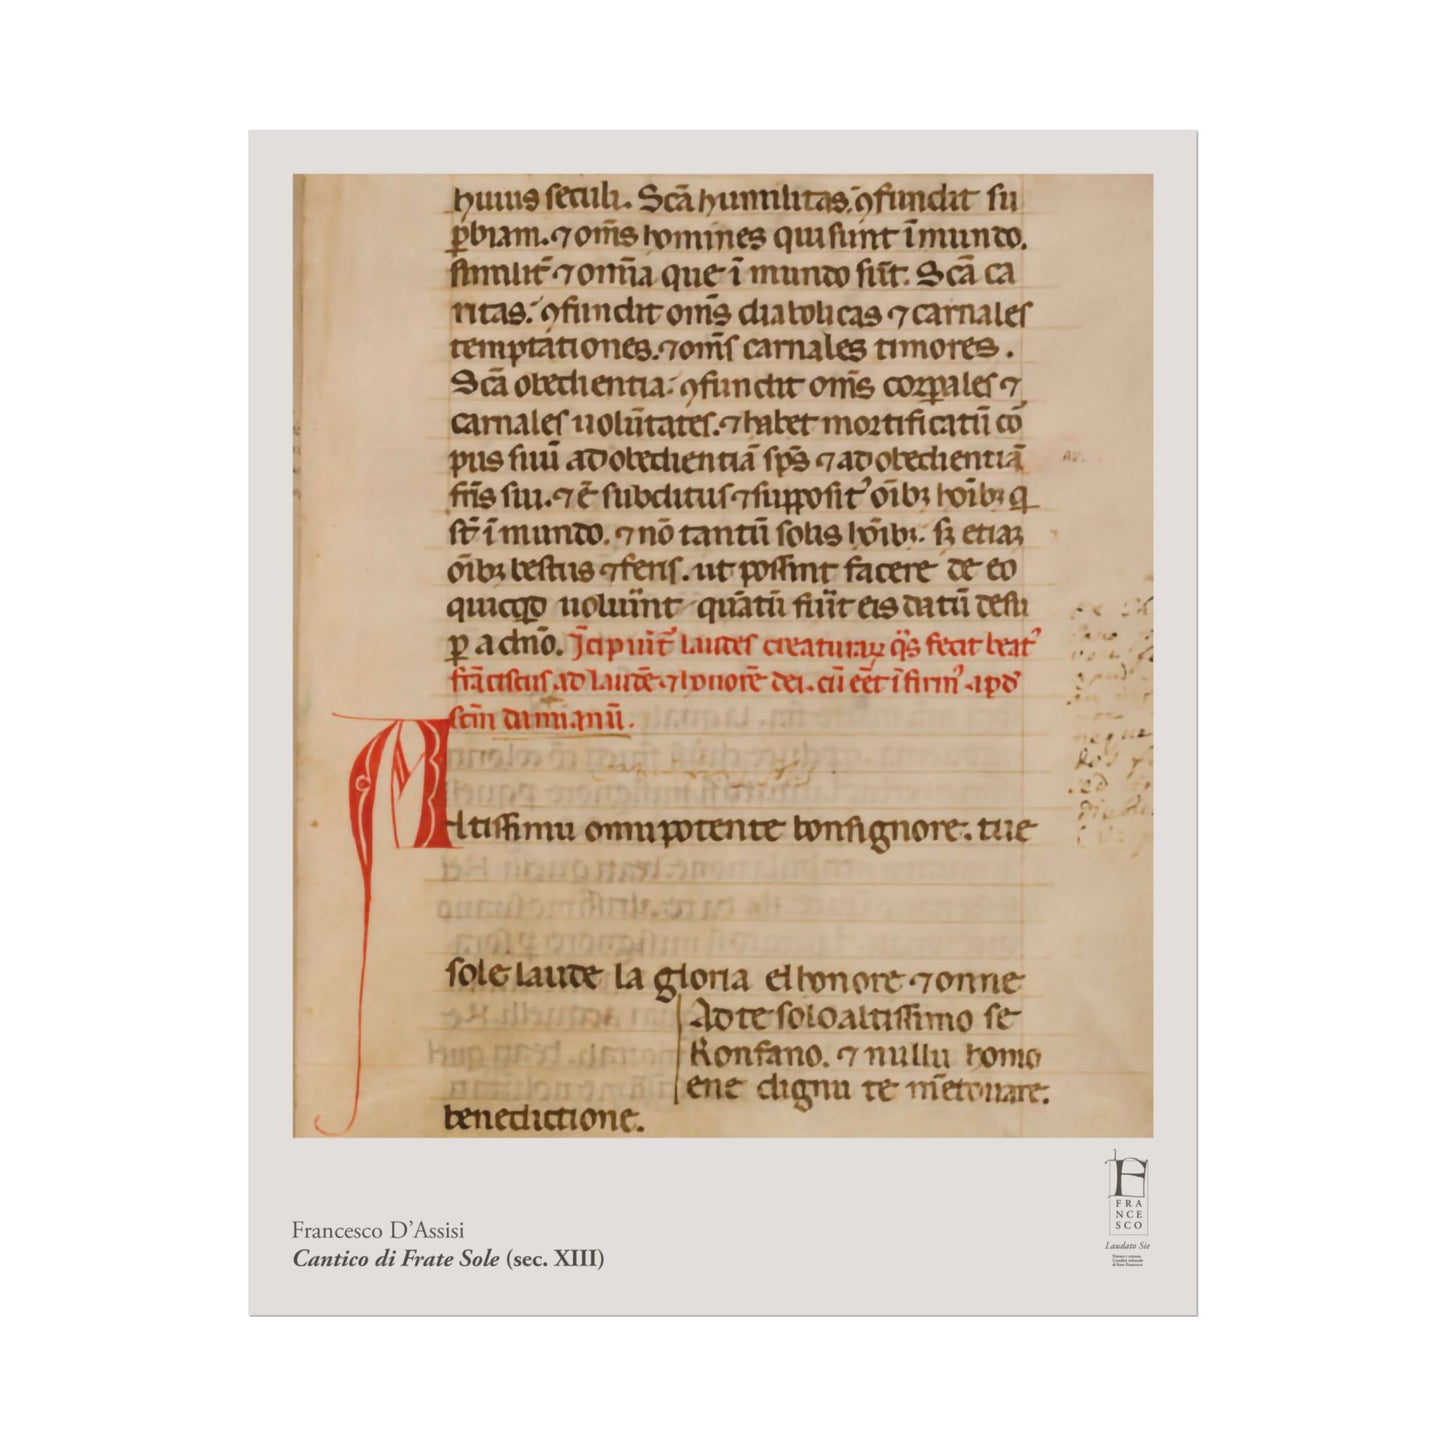 huius seculi. Scā humilitas. ꝯfundit su
ꝑbiam. ⁊ om̄s homines qui sunt ī mundo.
similit̄ ⁊ om̄ia que ī mundo sūt. Scā ca
ritas. ꝯfundit om̄s diabolicas ⁊ carnales
temptationes. ⁊ om̄s carnales timores.
Scā obedientia. ꝯfundit om̄s corꝑales ⁊
carnales uolūtates. ⁊ habet mortificatū cor
pus suū ad obedientiā sp̄s ⁊ ad obedientiā
fr̄is sui. ⁊ ē subditus ⁊ suppositꝰ oīb; hoīb; q̄
st̄ ī mundo. ⁊ nō tantū solis hoīb;. sꝫ etiaꝫ
oīb; bestiis ⁊ feris. ut possint facere de eo
quicqd uolūint quātū fūit eis datū desu
ꝑ a dn̄o. Īcipiūt laudes creaturaꝝ q̄s fecit beatꝰ
frāciscus ad laudē ⁊ honorē dei. cū eēt ī firmꝰ apd
scm̄ damianū.
Altissimu omnipotente bonsignore. tue
sole laude la gloria el honore ⁊ onne
Ad te solo altissimo se
Konfano. ⁊ nullu homo
ene dignu te m̄etouare.
benedictione.
Francesco D’Assisi
Cantico di Frate Sole (sec. XIII)
F
FRA
NCE
SCO
Laudato Sie